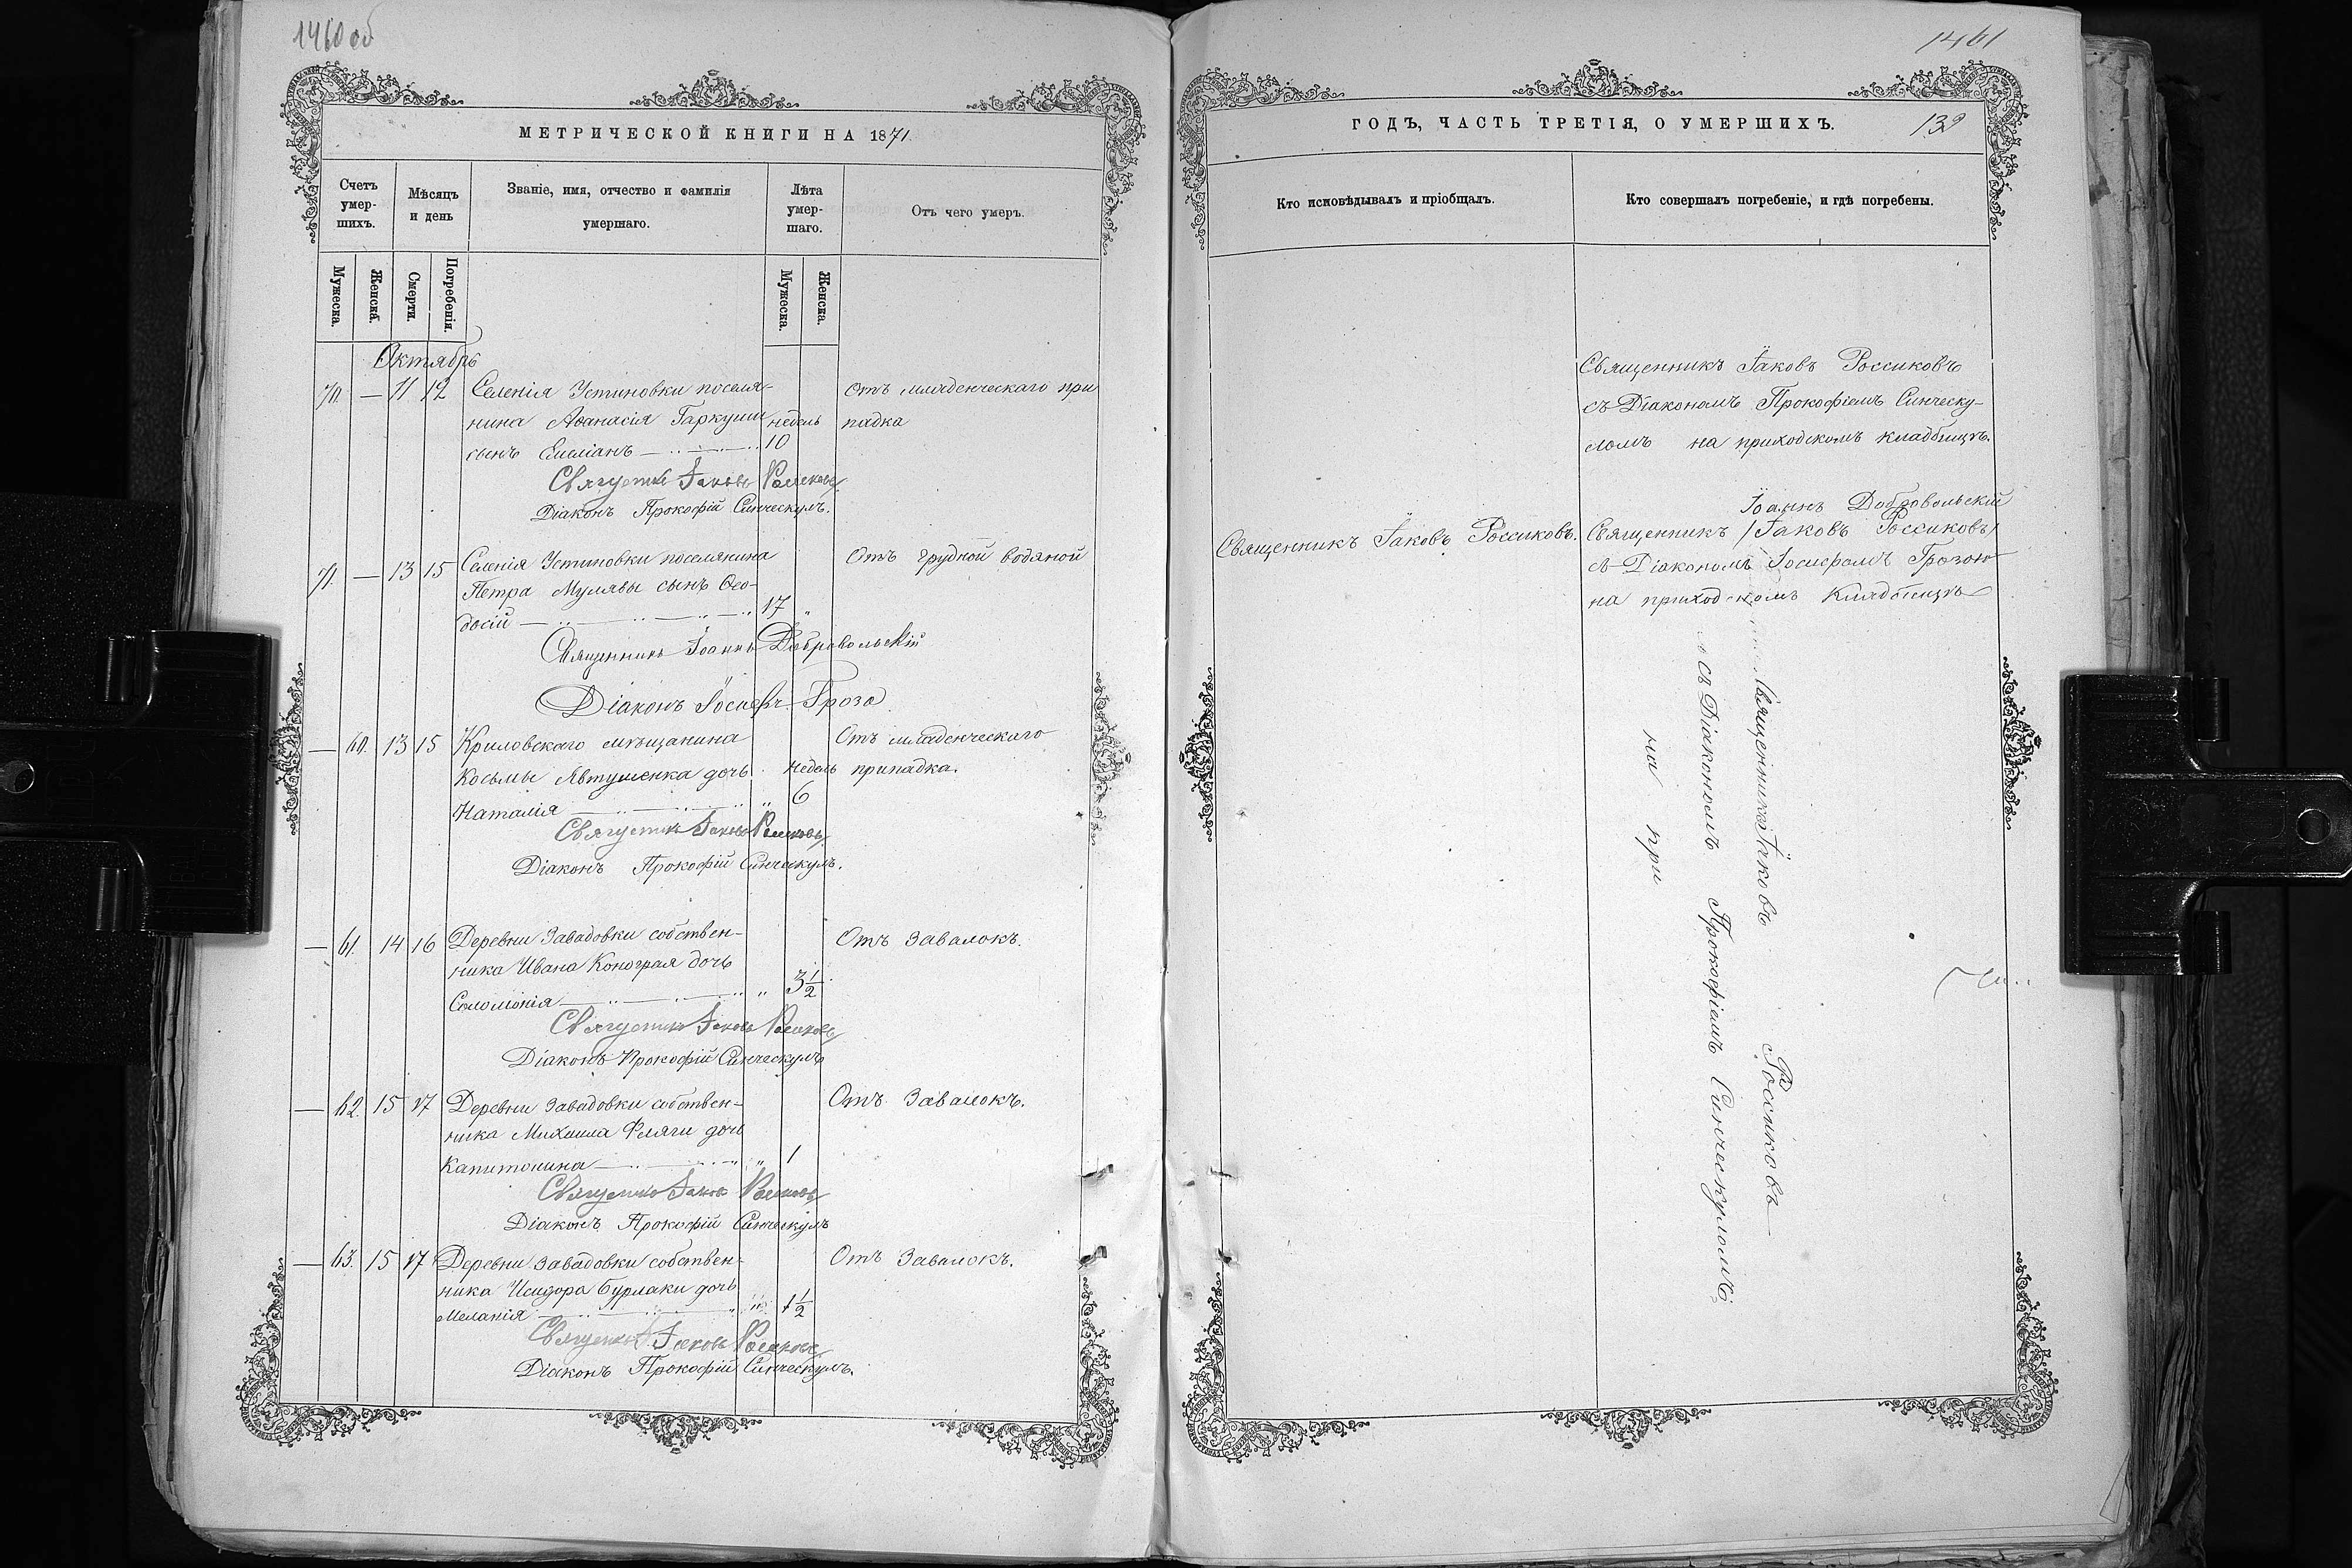 1460 об
МЕТРИЧЕСКОЙ КНИГИ НА 1871.
Счетъ умер-шихъ.
Мѣсяцъ и день
Званіе, имя, отчество и фамилія умершаго.
Лѣта умер-шаго.
Отъ чего умеръ.
Мужеска.
Женска.
Смерти.
Погребенія.
Мужеска.
Женска.
Октябрь
70. — 11 12 Селенія Устиновки поселя- Отъ младенческаго при
нина Аѳанасія Гаркуши недель падка
сынъ Емеліанъ 10
Священникъ Іаковъ Россиковъ
Діаконъ Прокофій Синческулъ.
71. — 13 15 Селенія Устиновки поселянина Отъ грудной водяной
Петра Мулявы сынъ Ѳео-
досій 17 "
Священникъ Іоаннъ Добровольскій
Діаконъ Іосифъ Гроза.
— 60. 13 15 Криловскаго мѣщанина Отъ младенческаго
Косьмы Явтушенка дочь недель припадка.
Наталія " 6
Священникъ Іаковъ Россиковъ
Діаконъ Прокофій Синческулъ.
— 61. 14 16 Деревни Завадовки собствен- Отъ завалокъ.
ника Ивана Конограя дочь
Соломонія " 3 1/2
Священникъ Іаковъ Россиковъ
Діаконъ Прокофій Синческулъ
— 62. 15 17 Деревни Завадовки собствен- Отъ завалокъ.
ника Михаила Фляги дочь
Капитолина " 1
Священникъ Іаковъ Россиковъ
Діаконъ Прокофій Синческулъ
— 63. 15 17 Деревни Завадовки собствен- Отъ завалокъ.
ника Исидора Бурлаки дочь
Меланія " 1 1/2
Священникъ Іаковъ Россиковъ
Діаконъ Прокофій Синческулъ.
1461
ГОДЪ, ЧАСТЬ ТРЕТІЯ, О УМЕРШИХЪ.
139
Кто исповѣдывалъ и пріобщалъ.
Кто совершалъ погребеніе, и гдѣ погребены.
Священникъ Іаковъ Россиковъ
съ Діакономъ Прокофіемъ Синческу-
ломъ на приходскомъ кладбищѣ.
Іоаннъ Добровольскій
Священникъ Іаковъ Россиковъ.
Священникъ /Іаковъ Россиковъ/
съ Діакономъ Іосифомъ Грозою
на приходскомъ кладбищѣ
Священникъ Іаковъ Россиковъ
съ Діакономъ Прокофіемъ Синческуломъ
на при